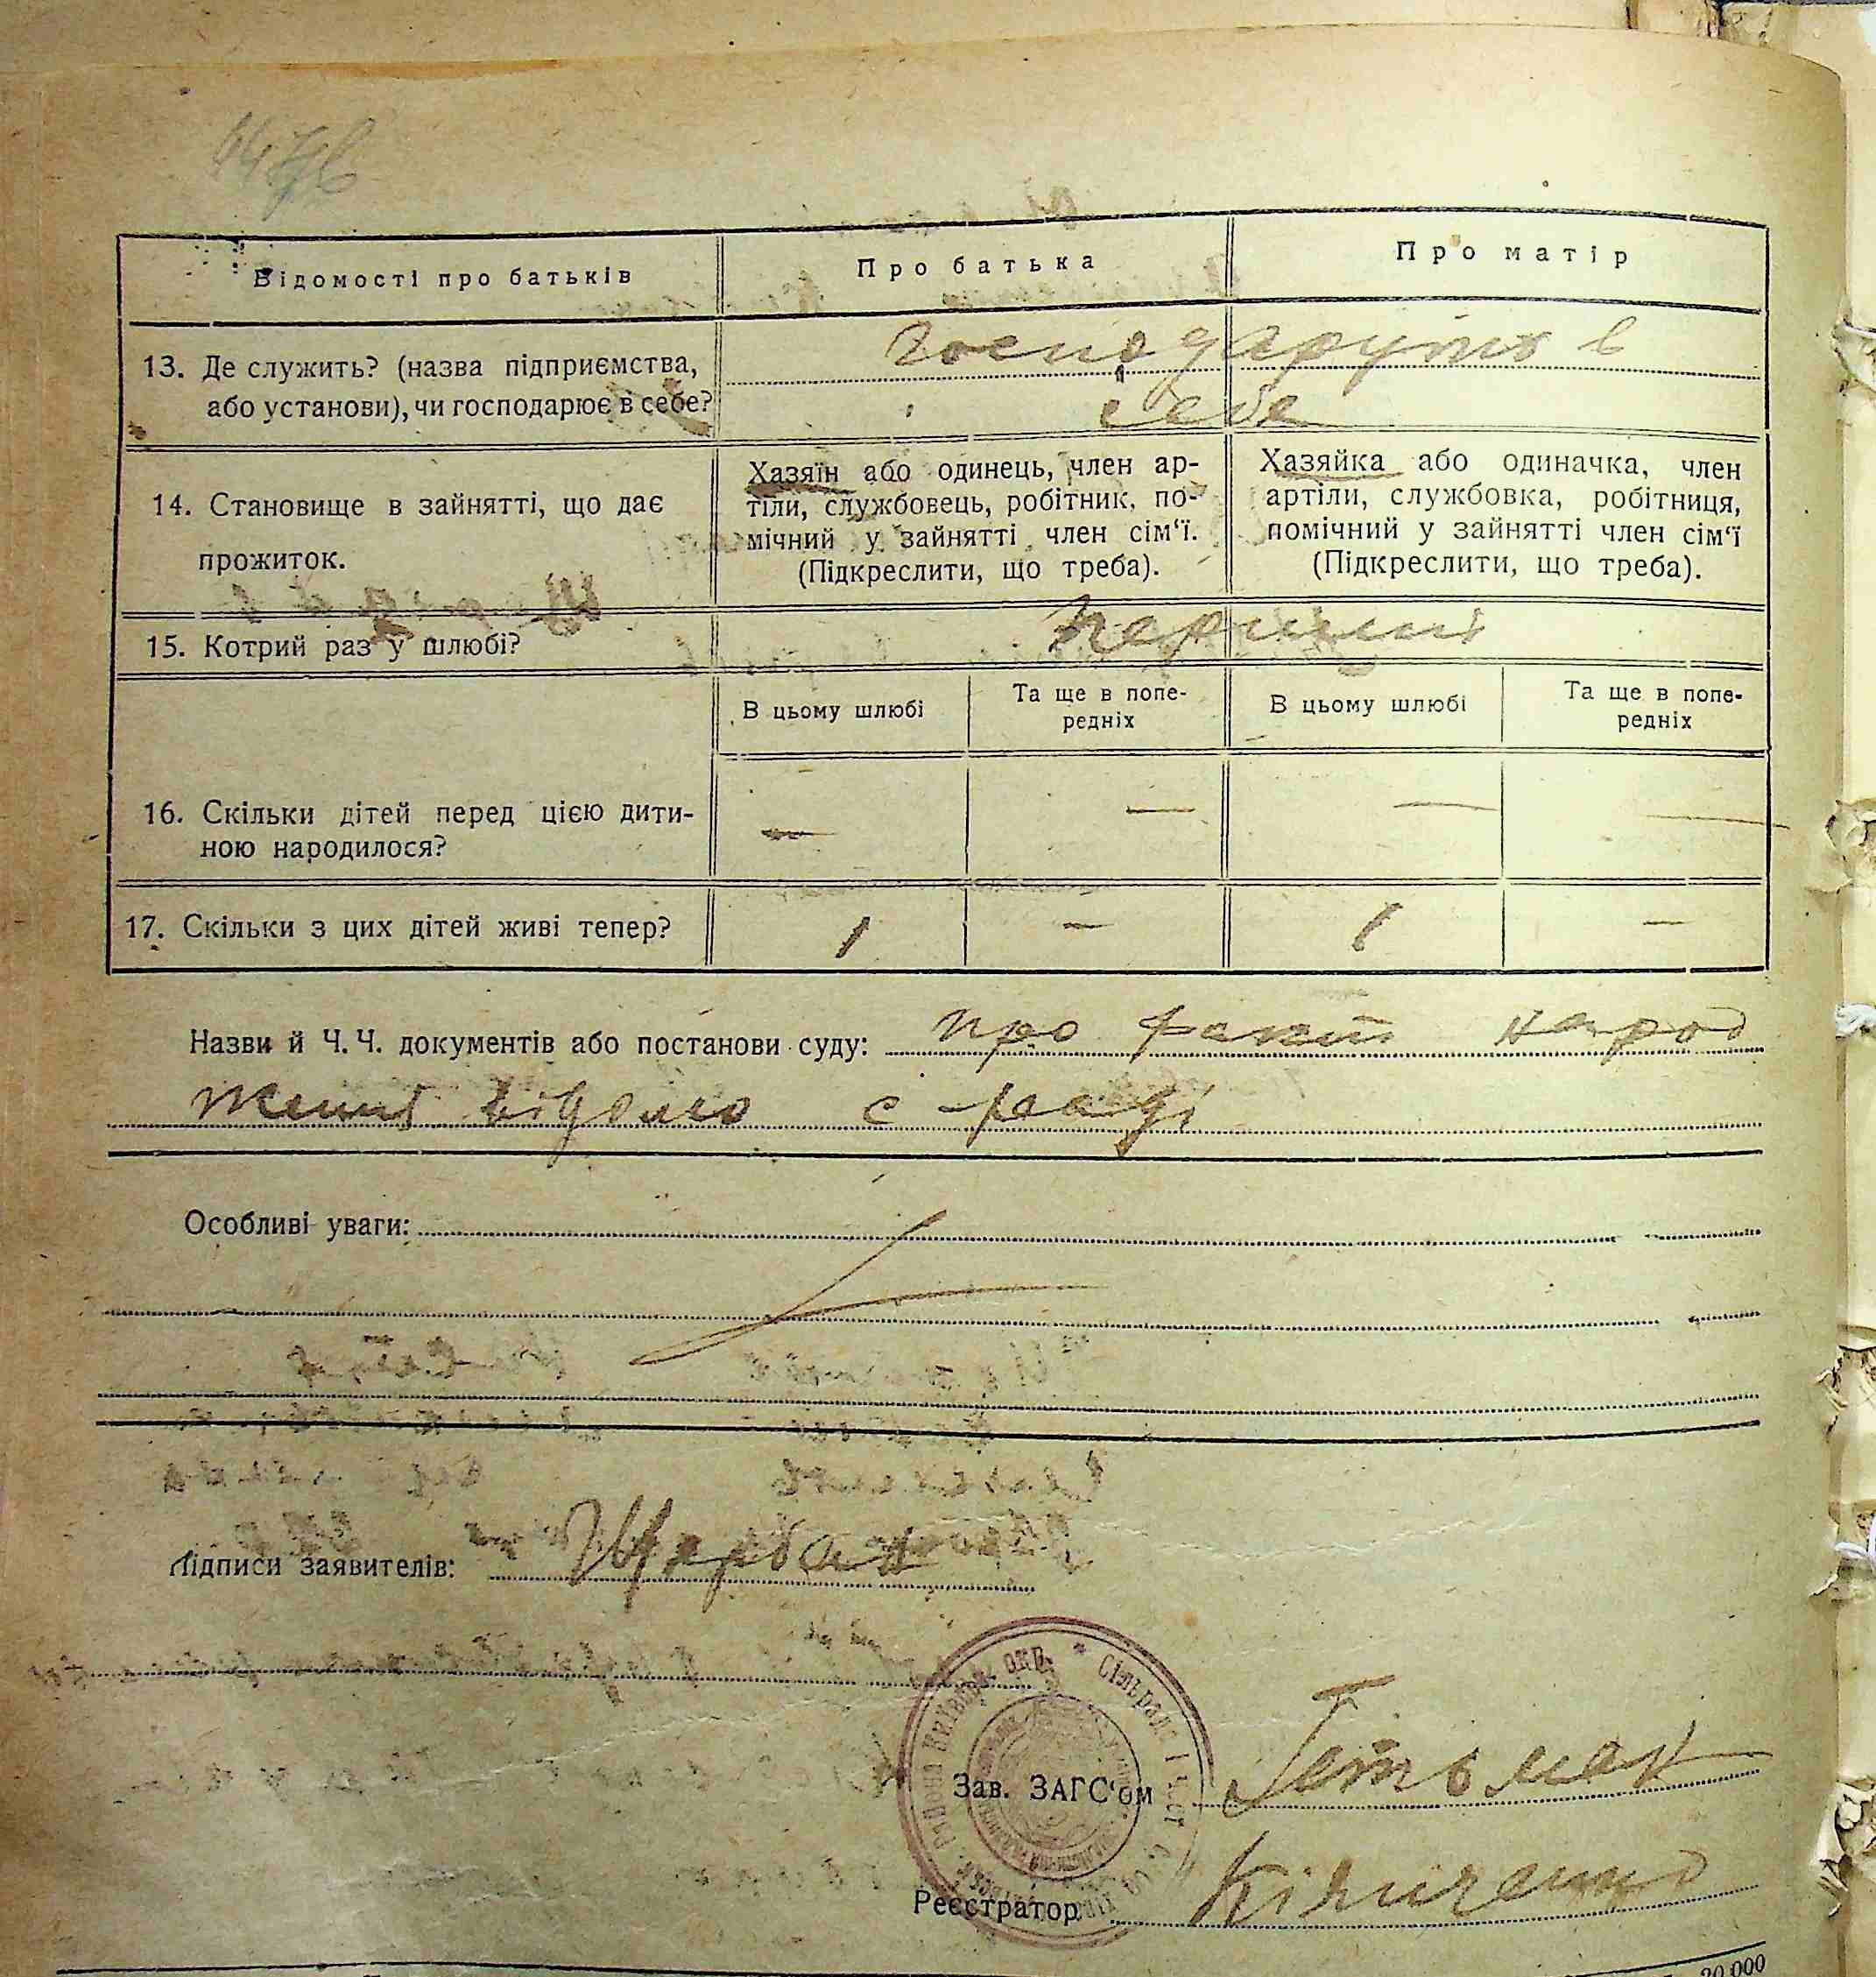 Відомості про батьків
Про батька
Про матір
13. Де служить? (назва підприємства,
або установи), чи господарює в себе?
Господарують в
себе
14. Становище в зайнятті, що дає
прожиток.
Хазяїн або одинець, член ар-
тіли, службовець, робітник, по-
мічний у зайнятті член сім‘ї.
(Підкреслити, що треба).
Хазяйка або одиначка, член
артіли, службовка, робітниця,
помічний у зайнятті член сім‘ї
(Підкреслити, що треба).
15. Котрий раз у шлюбі?
В цьому шлюбі
Та ще в попе-
редніх
В цьому шлюбі
Та ще в попе-
редніх
16. Скільки дітей перед цією дити-
ною народилося?
—
—
—
—
17. Скільки з цих дітей живі тепер?
1
—
1
—
Назви й Ч.Ч. документів або постанови суду: про факт народ
ження відомо с-раді
Особливі уваги:
Підписи заявителів: Щербак
Сільрада
Зав. ЗАГС‘ом Гетьман
Реєстратор
20.000